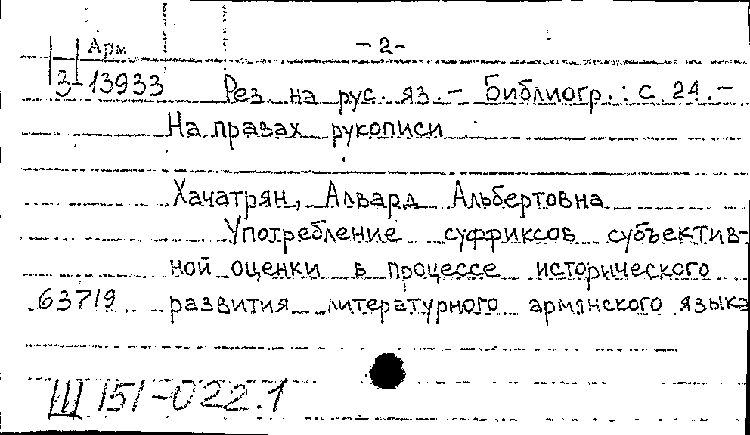 Арм. - 2 -
3-13933 Рез. на рус. яз. - Библиогр.: с. 24. -
На правах рукописи
Хачатрян, Алвард Альбертовна
Употребление суффиксов субъектив-
ной оценки в процессе исторического
63719 развития литературного армянского языка
Ш 151-022.1